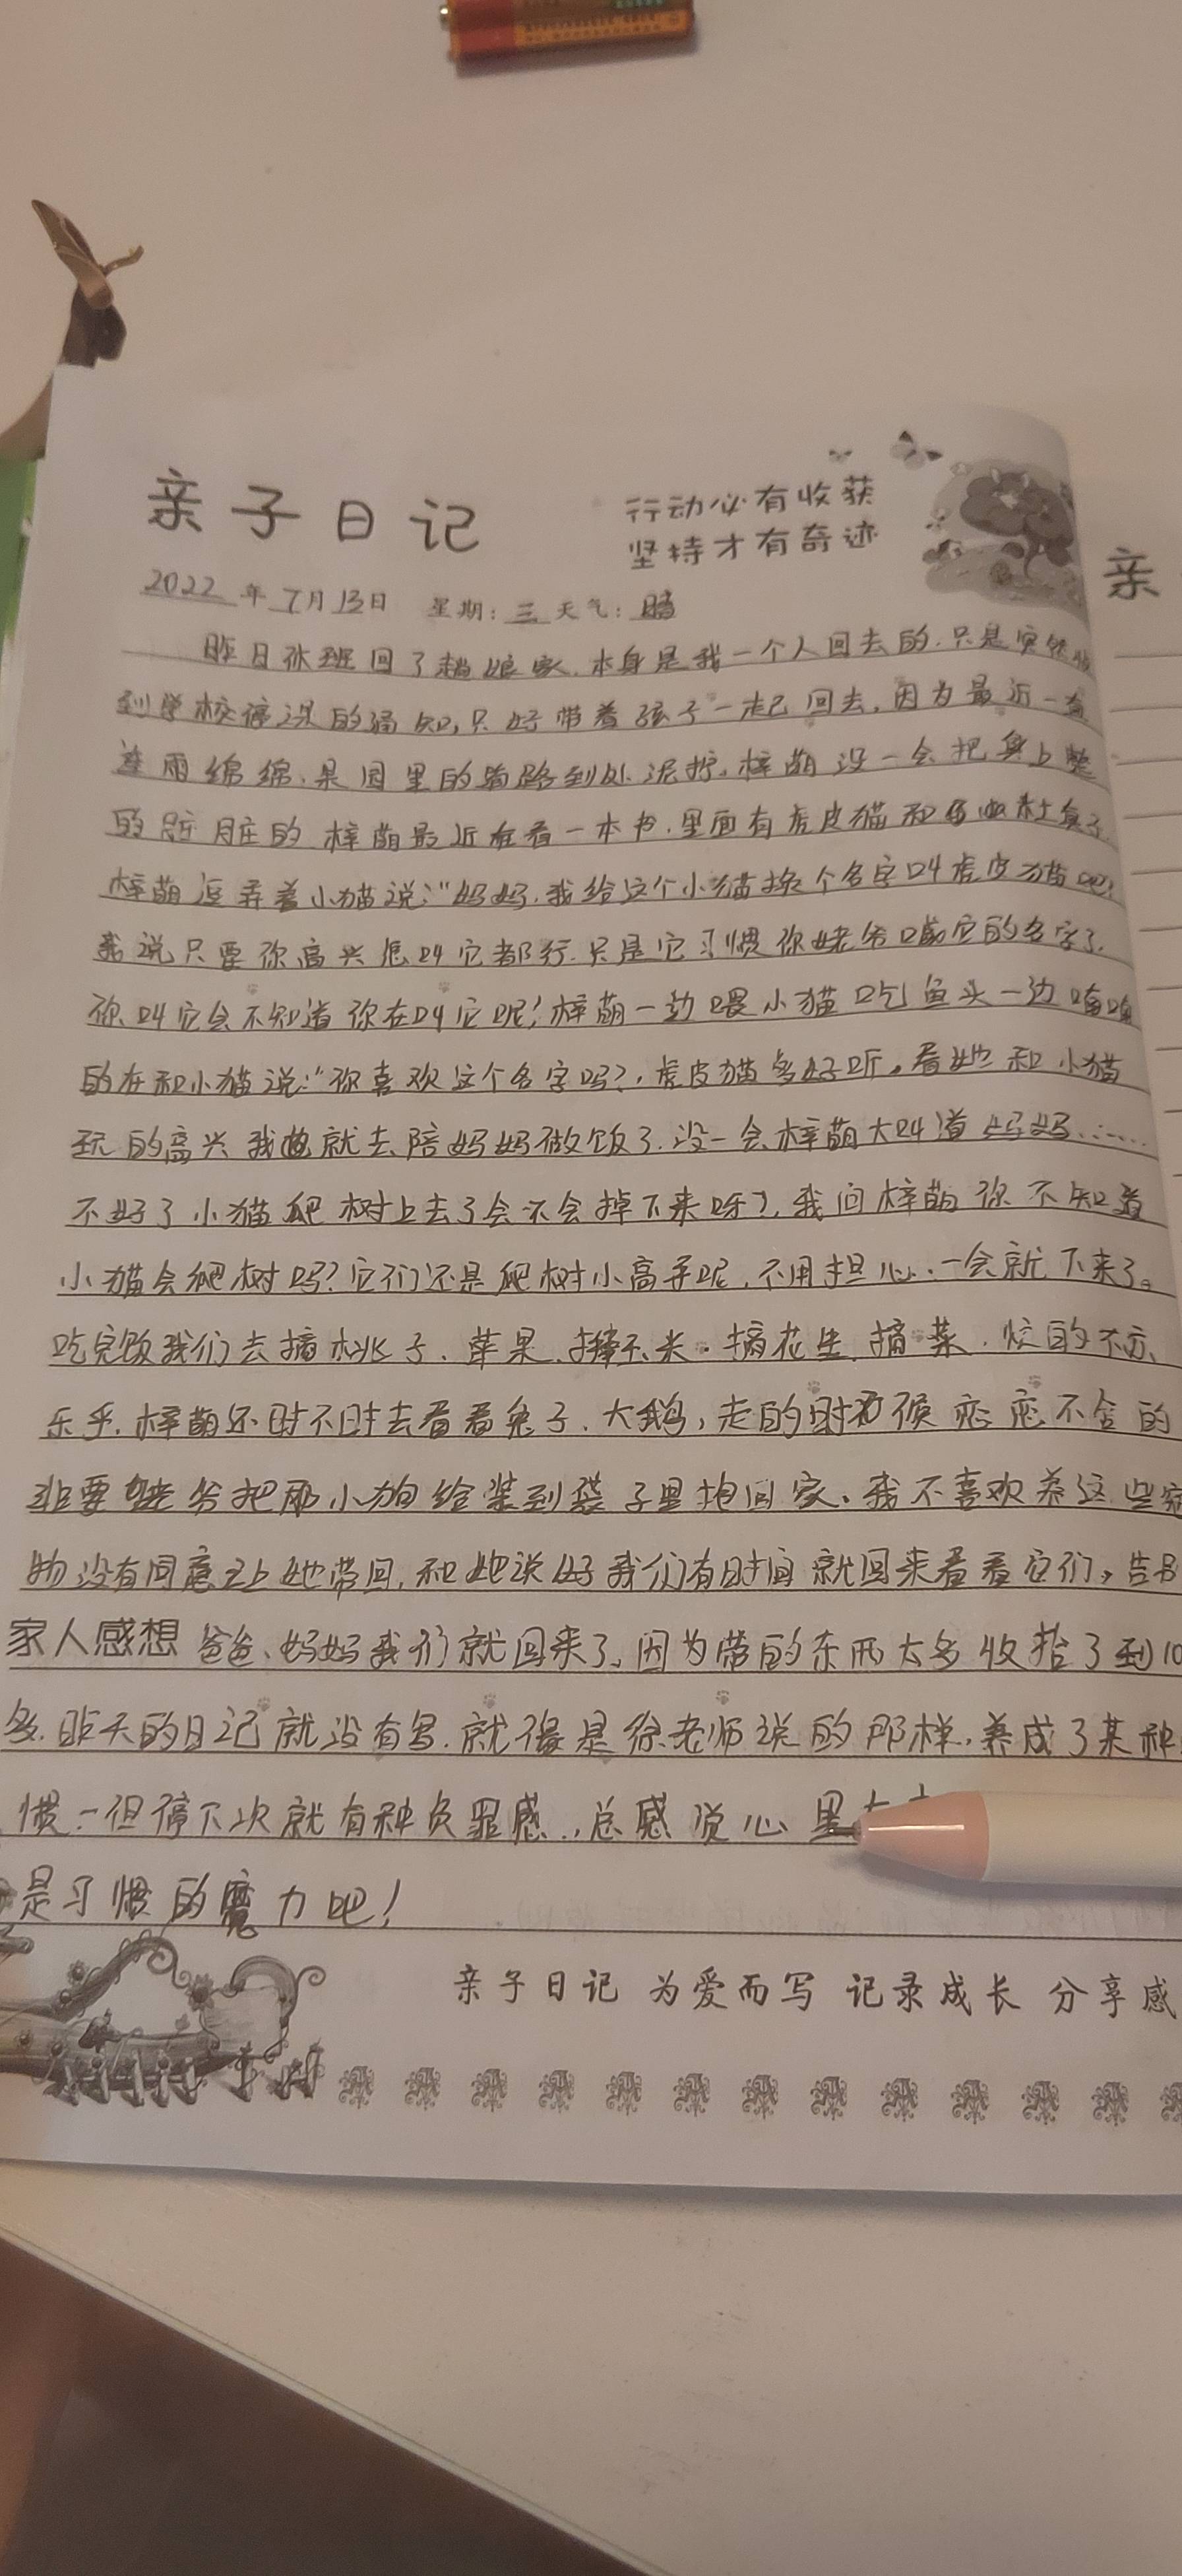 亲子日记
行动必有收获
坚持才有奇迹
亲
2022年7月13日 星期:三天气:晴
昨日休班回了趟娘家,本身是我一个人回去的.只是突然
到学校停课的通知,只好带着孩子一起回去,因为最近一直
连雨绵绵,果园里的道路到处泥拧,梓萌没一会把身上整
的脏脏的 梓萌最近在看一本书,里面有虎皮猫和
梓萌逗弄着小猫说:"妈妈,我给这个小猫换个名字叫虎皮猫吧!
我说只要你高兴怎叫它都行.只是它习惯你姥爷喊它的名字了.
你叫它会不知道你在叫它呢!梓萌一边喂小猫吃鱼头一边喃喃
的在和小猫说:"你喜欢这个名字吗?,虎皮猫多好听。看她和小猫
玩的高兴我也就去陪妈妈做饭了.没一会梓萌大叫道妈妈……
不好了小猫爬树上去了会不会掉下来呀?,我问梓萌你不知道
小猫会爬树吗?它们还是爬树小高手呢,不用担心.一会就下来了。
吃完饭我们去摘桃子、苹果、掰玉米、摘花生、摘菜.忙的不亦
乐乎.梓萌还时不时去看看兔子、大鹅,走的时候恋恋不舍的
非要姥爷把那小狗给装到袋子里抱回家。我不喜欢养这些宠
物没有同意让她带回,和她说好我们有时间就回来看看它们,告别
家人感想 爸爸、妈妈我们就回来了。因为带的东西太多收拾了到10
多.昨天的日记就没有写.就像是徐老师说的那样,养成了某种
惯一但停下次就有种负罪感.,总感觉心里
是习惯的魔力吧!
亲子日记 为爱而写 记录成长 分享感